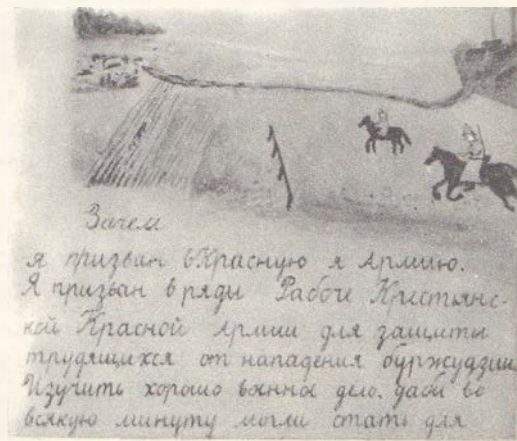 Зачем
я призван в Красную я Армию.
Я призван в ряды Рабоче Крестьянс-
кой Красной Армии для защиты
трудящихся от нападения буржудзии
Изучить хорошо военное дело. дабы во
всякую минуту могли стать для